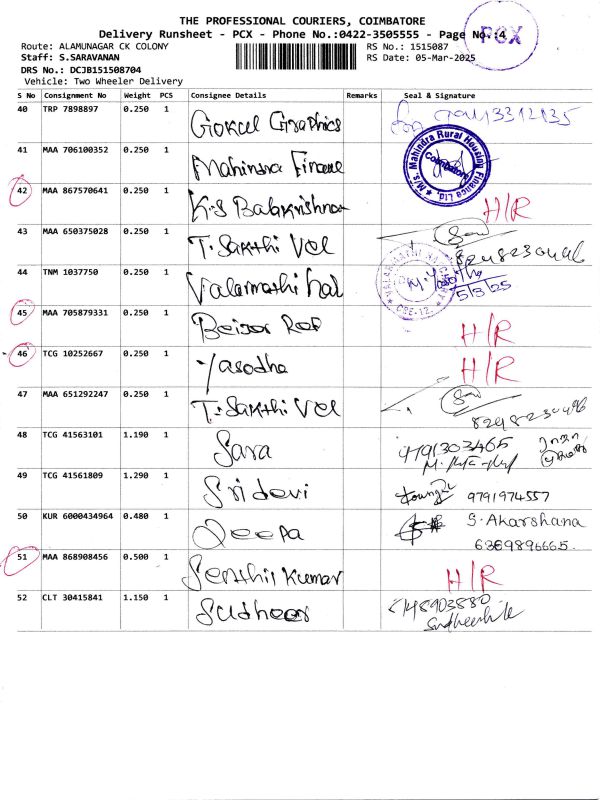 THE PROFESSIONAL COURIERS, COIMBATORE
Delivery Runsheet - PCX - Phone No.:0422-3505555 - Page No.:4
PCX
Route: ALAMUNAGAR CK COLONY RS No.: 1515087
Staff: S.SARAVANAN RS Date: 05-Mar-2025
DRS No.: DCJB151508704
Vehicle: Two Wheeler Delivery
S No Consignment No Weight PCS Consignee Details Remarks Seal & Signature
40 TRP 7898897 0.250 1 Gokul Graphics
41 MAA 706100352 0.250 1 Mahindra Finance
M/s. Mahindra Rural Housing Finance Ltd. Coimbatore
42 MAA 867570641 0.250 1 K.S Balakrishnan H/R
43 MAA 650375028 0.250 1 T. Sakthi Vel 8248230496
44 TNM 1037750 0.250 1 Valarmathi 5/3/25
CBE-12.
45 MAA 705879331 0.250 1 H/R
46 TCG 10252667 0.250 1 Yasodha H/R
47 MAA 651292247 0.250 1 T. Sakthi Vel 8298230496
48 TCG 41563101 1.190 1 Sara 9791303465
49 TCG 41561809 1.290 1 Sridevi 9791974557
50 KUR 6000434964 0.480 1 Deepa S. Akarshana
6369896665.
51 MAA 868908456 0.500 1 Senthil Kumar H/R
52 CLT 30415841 1.150 1 Sudheer